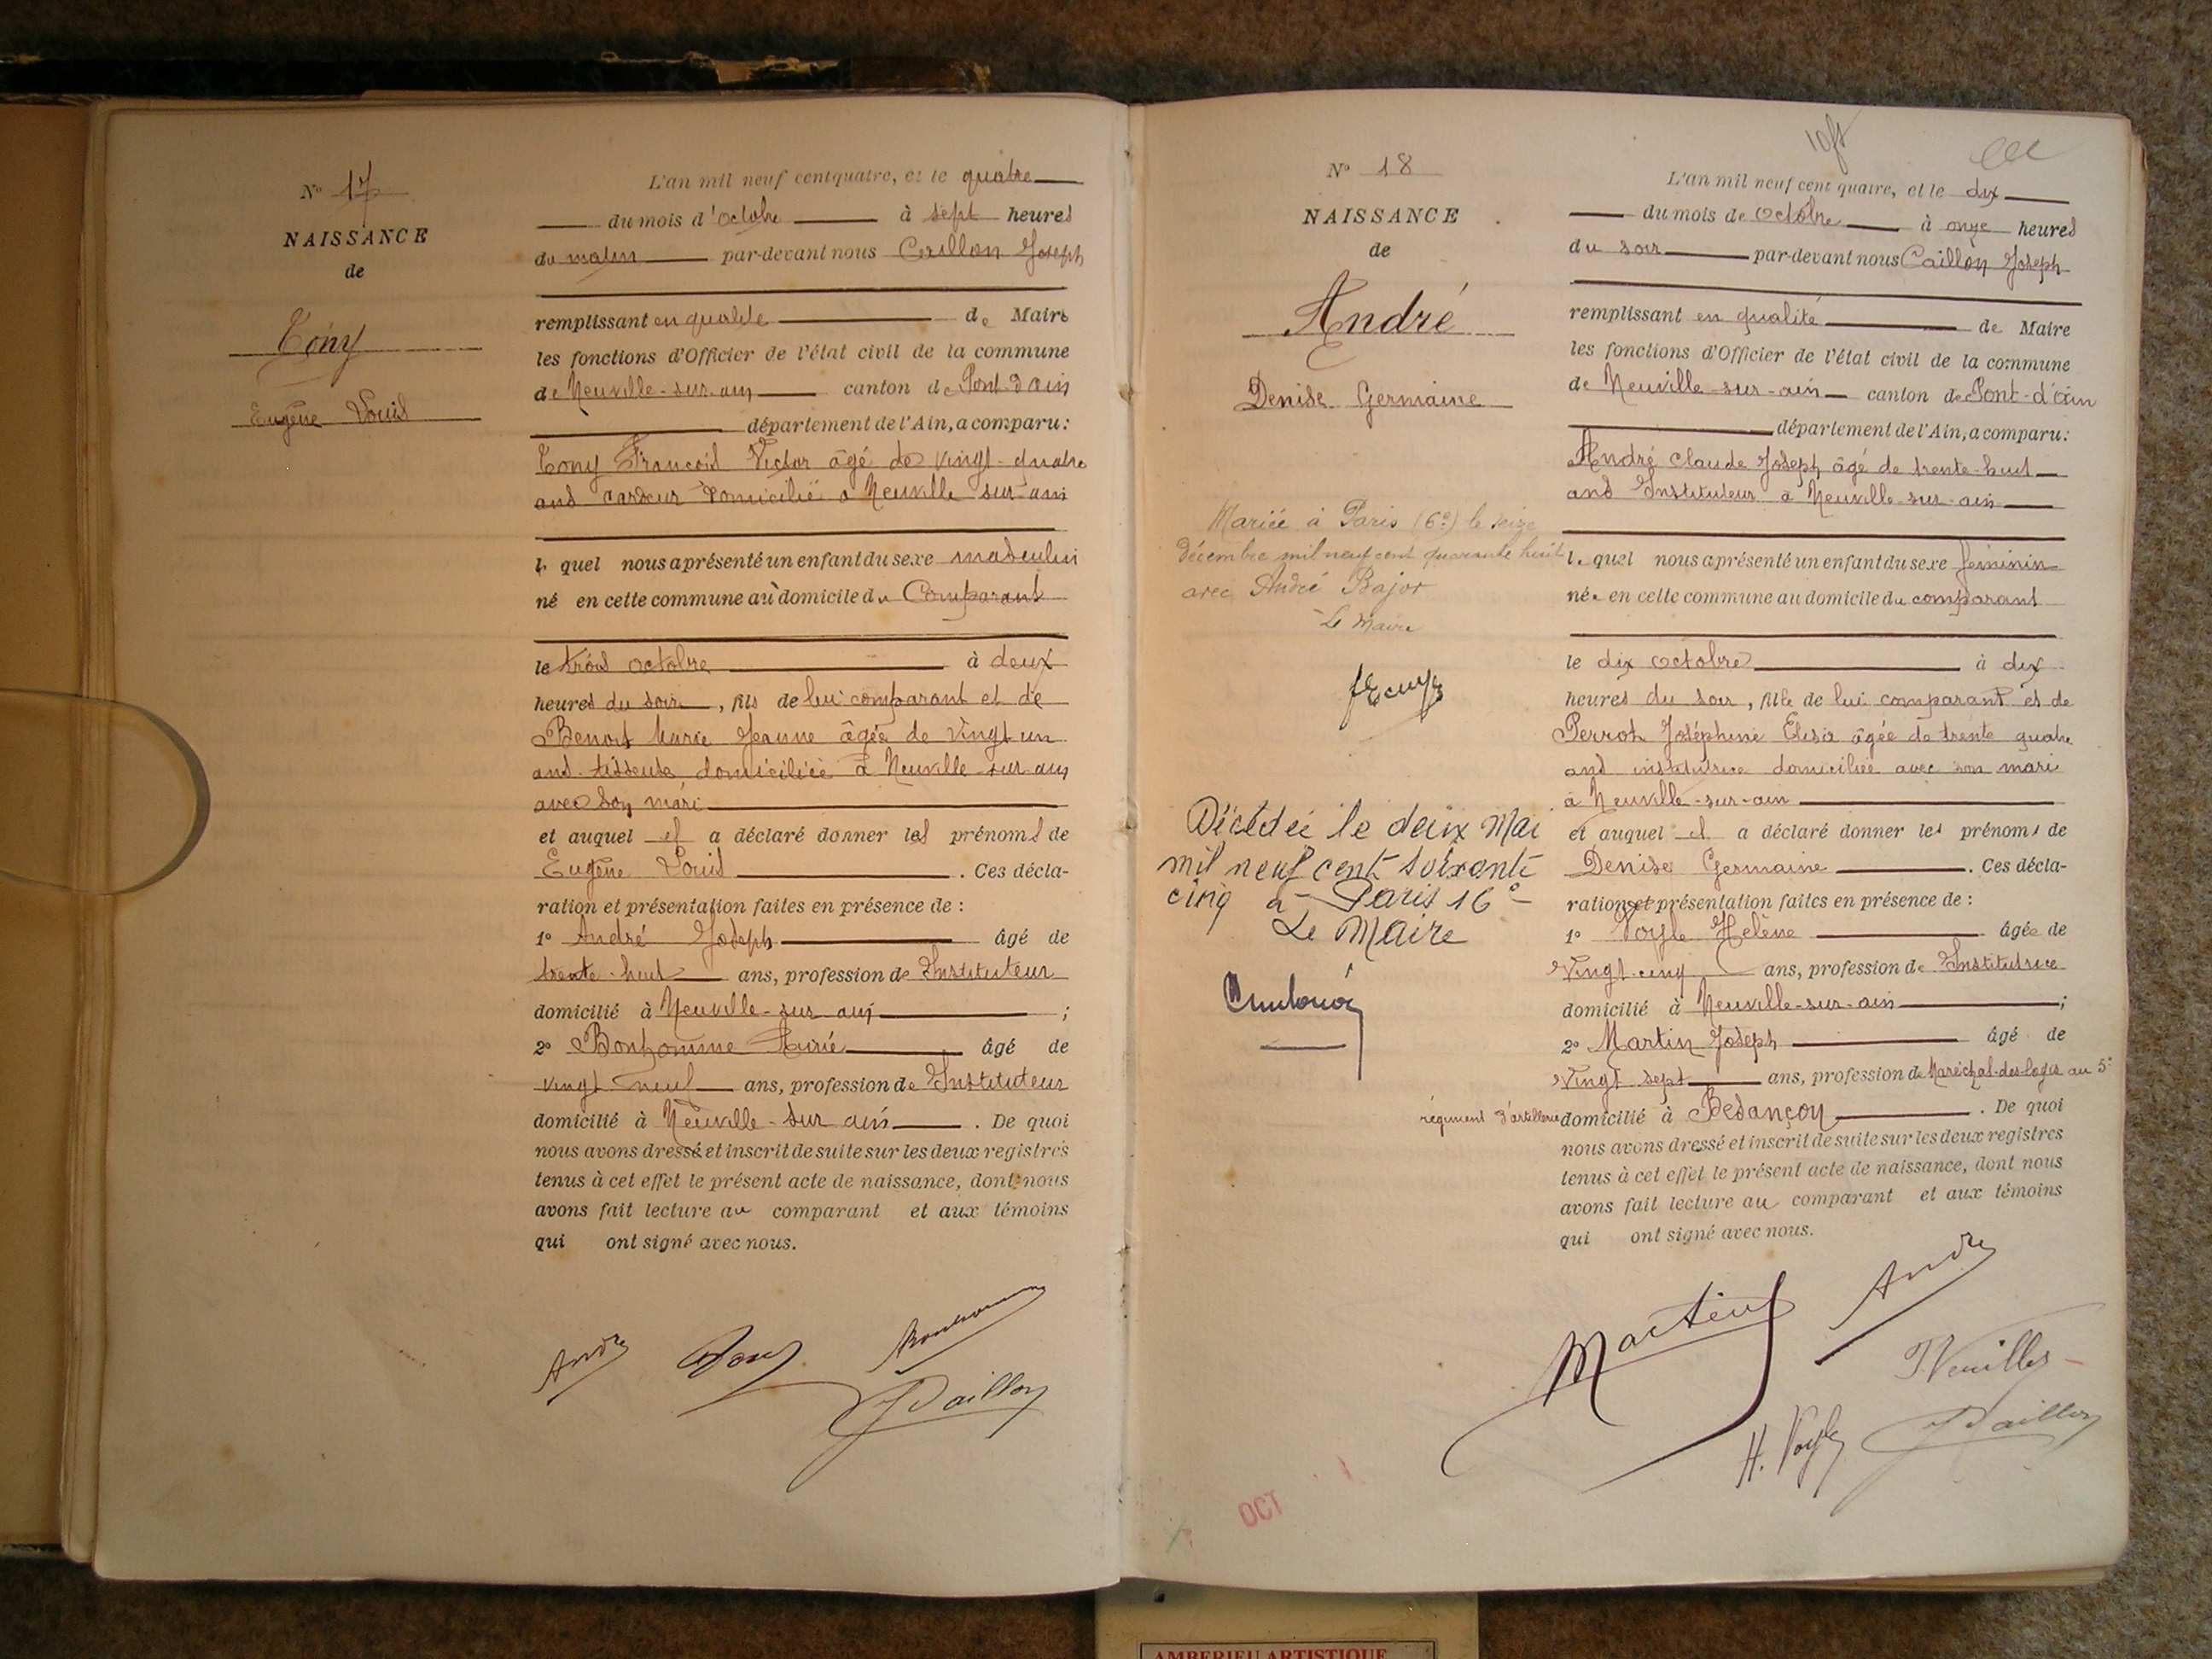 N° 17
NAISSANCE
de
Tony
Eugène Louis
L'an mil neuf cent quatre, et le quatre
du mois d'octobre à sept heures
du matin par-devant nous Caillon Joseph
remplissant en qualité de Maire
les fonctions d'Officier de l'état civil de la commune
de Neuville-sur-ain canton de Pont-d'ain
département de l'Ain, a comparu:
Tony François Victor âgé de vingt-quatre
ans cardeur domicilié à Neuville-sur-ain
lequel nous a présenté un enfant du sexe masculin
né en cette commune au domicile du Comparant
le trois octobre à deux
heures du soir, fils de lui comparant et de
Benoit Marie Jeanne âgée de vingt un
ans tisseuse domiciliée à Neuville-sur-ain
avec son mari
et auquel il a déclaré donner les prénoms de
Eugène Louis. Ces décla-
ration et présentation faites en présence de:
1° André Joseph âgé de
trente-huit ans, profession de Instituteur
domicilié à Neuville-sur-ain;
2° Bonhomme âgé de
vingt neuf ans, profession de Instituteur
domicilié à Neuville-sur-ain. De quoi
nous avons dressé et inscrit de suite sur les deux registres
tenus à cet effet le présent acte de naissance, dont nous
avons fait lecture au comparant et aux témoins
qui ont signé avec nous.
André Tony Bonhomme
JCaillon
N° 18
NAISSANCE
de
André
Denise Germaine
Mariée à Paris (6e) le seize
décembre mil neuf cent quarante huit
avec André Bajor
Le Maire
Décédée le deux Mai
mil neuf cent soixante
cinq à Paris 16e
Le Maire
L'an mil neuf cent quatre, et le dix
du mois de Octobre à onze heures
du soir par-devant nous Caillon Joseph
remplissant en qualité de Maire
les fonctions d'Officier de l'état civil de la commune
de Neuville-sur-ain canton de Pont-d'ain
département de l'Ain, a comparu:
André Claude Joseph âgé de trente-huit
ans Instituteur à Neuville-sur-ain
lequel nous a présenté un enfant du sexe féminin
née en cette commune au domicile du comparant
le dix octobre à dix
heures du soir, fille de lui comparant et de
Perrot Joséphine Elisa âgée de trente quatre
ans institutrice domiciliée avec son mari
à Neuville-sur-ain
et auquel il a déclaré donner les prénoms de
Denise Germaine. Ces décla-
rations et présentation faites en présence de:
1° Voyle Hélène âgée de
vingt-cinq ans, profession de Institutrice
domicilié à Neuville-sur-ain;
2° Martin Joseph âgé de
vingt sept ans, profession de Maréchal-des-logis au 5e
régiment d'artillerie domicilié à Besançon. De quoi
nous avons dressé et inscrit de suite sur les deux registres
tenus à cet effet le présent acte de naissance, dont nous
avons fait lecture au comparant et aux témoins
qui ont signé avec nous.
Martin André
H. Voyle JCaillon
OCT
AMBERIEU ARTISTIQUE